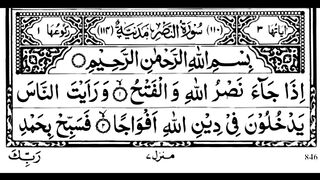 اٰيَاتُهَا ٣ (١١٠) سُوْرَةُ النَّصْرِ مَدَنِيَّةٌ (١١٤) رُكُوْعُهَا ١
بِسْمِ اللّٰهِ الرَّحْمٰنِ الرَّحِيْمِ
اِذَا جَآءَ نَصْرُ اللّٰهِ وَالْفَتْحُ ۝١ وَرَاَيْتَ النَّاسَ
يَدْخُلُوْنَ فِيْ دِيْنِ اللّٰهِ اَفْوَاجًا ۝٢ فَسَبِّحْ بِحَمْدِ
رَبِّكَ منزل ٧ 846